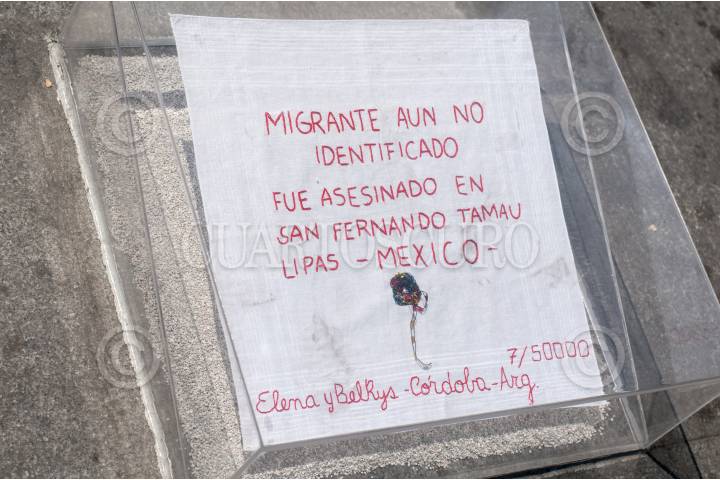 MIGRANTE AUN NO
IDENTIFICADO
FUE ASESINADO EN
SAN FERNANDO TAMAU
LIPAS - MEXICO -
CUARTOSCURO
7/50000
Elena y Belkys - Córdoba - Arg.